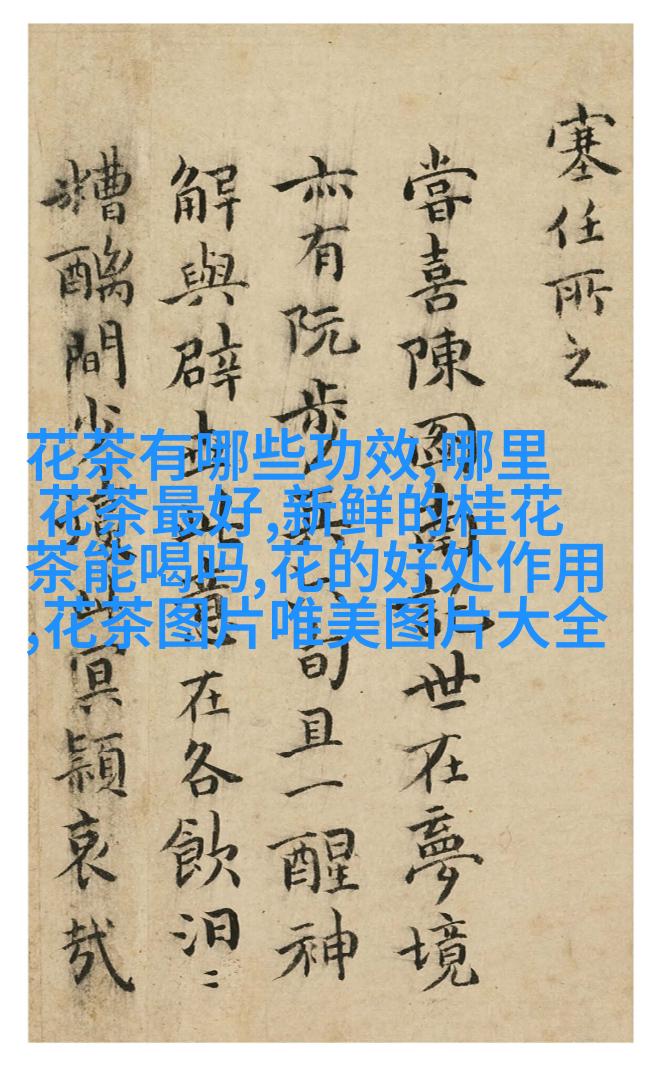 塞任所之
嘗喜陳圖南託世在夢境
亦有阮步兵且一醒神
解與辟此意在各飲汩〻
糟醨間此冥穎哀哉
花茶有哪些功效,哪里
花茶最好,新鲜的桂花
茶能喝吗,花的好处作用
,花茶图片唯美图片大全